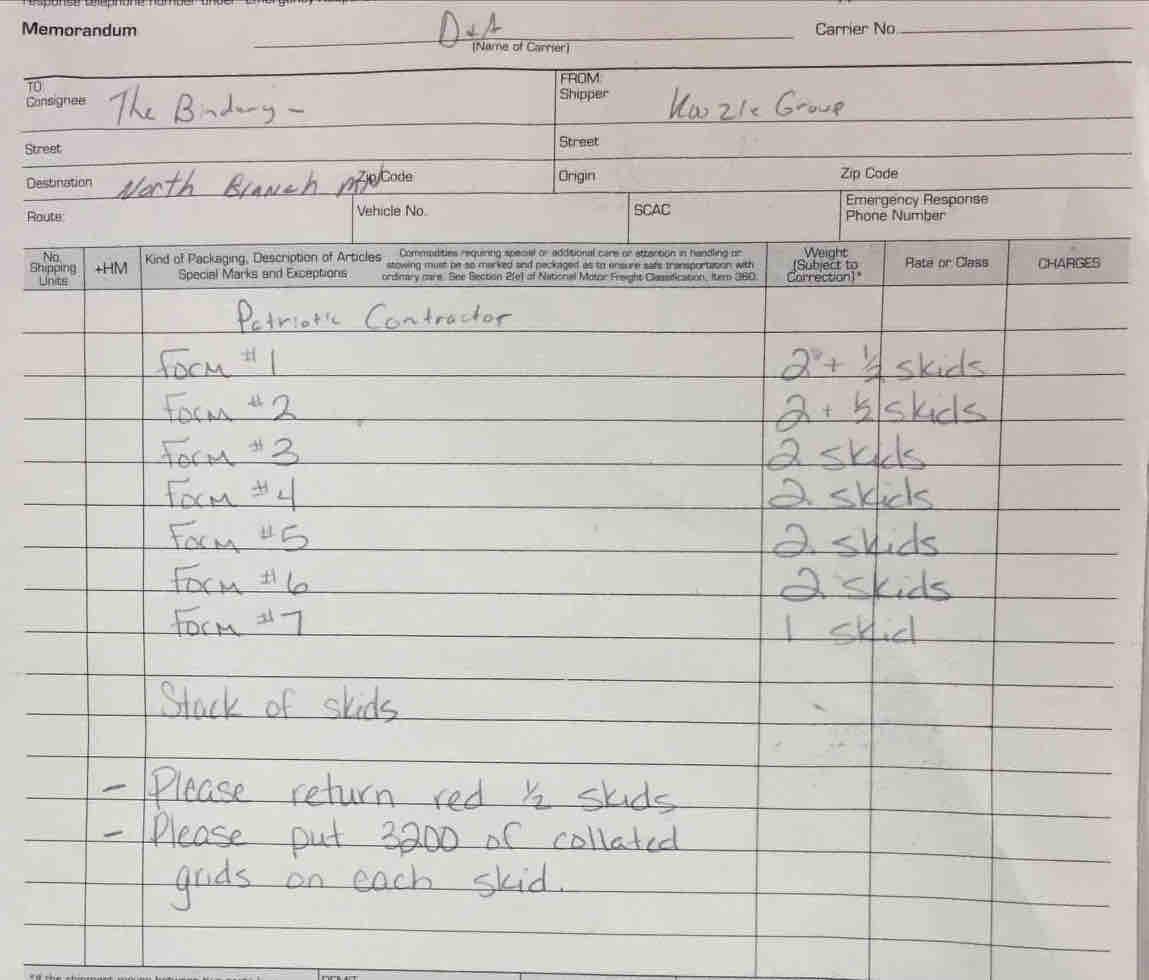 Memorandum D & A Carrier No.
(Name of Carrier)
TO: FROM:
Consignee The Bindery - Shipper Group
Street Street
Destination North Branch MN Zip Code Origin Zip Code
Route: Vehicle No. SCAC Emergency Response
Phone Number
No. Shipping Units +HM Kind of Packaging, Description of Articles Special Marks and Exceptions Commodities requiring special or additional care or attention in handling or stowing must be so marked and packaged as to ensure safe transportation with ordinary care. See Section 2(e) of National Motor Freight Classification, Item 360. Weight (Subject to Correction)* Rate or Class CHARGES
Patriotic Contractor
Form #1 2 + ½ skids
Form #2 2 + ½ skids
Form #3 2 skids
Form #4 2 skids
Form #5 2 skids
Form #6 2 skids
Form #7 1 skid
Stack of skids
- Please return red ½ skids
- Please put 3200 of collated
grids on each skid.